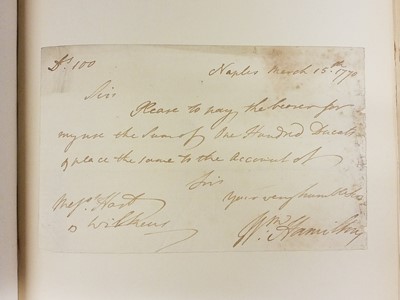 Ds. 100
Naples March 15th 1770
Sir
Please to pay the bearer for
my use the Sum of One Hundred Ducats
& place the same to the Account of
Sir
Your very humble
Messrs. Hart
& Wilkens
Wm. Hamilton